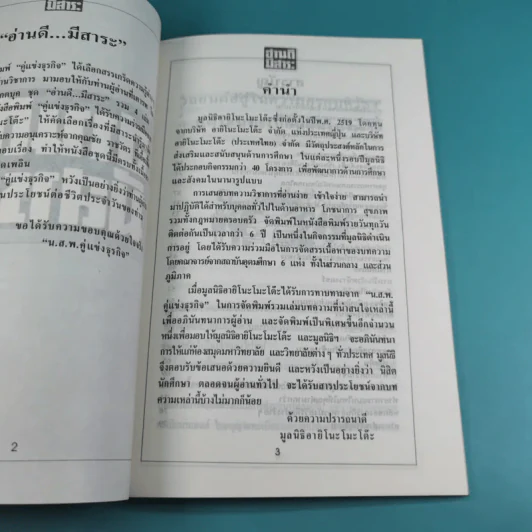 มีสาระ
“อ่านดี...มีสาระ”
“คู่แข่งธุรกิจ” ได้เลือกสรรเกร็ดความรู้
วิชาการ มามอบให้กับท่านผู้อ่าน
ชุด “อ่านดี...มีสาระ” รวม 4 เล่ม
“คู่แข่งธุรกิจ” ได้รับความ
ให้คัดเลือกเรื่องที่มีสาระ
ความอนุเคราะห์จากคุณชัย ราชวัตร
เรื่อง ทำให้หนังสือชุดนี้มีครบ
เพลิดเพลิน
“คู่แข่งธุรกิจ” หวังเป็นอย่างยิ่งว่าท่านผู้
ประโยชน์ต่อชีวิตประจำวันของท่าน
ขอได้รับความขอบคุณด้วยใจจริง
“น.ส.พ.คู่แข่งธุรกิจ”
2
อ่านดี
มีสาระ
คำนำ
มูลนิธิอายิโนะโมะโต๊ะซึ่งก่อตั้งขึ้นในปีพ.ศ. 2519 โดยทุน
จากบริษัท อายิโนะโมะโต๊ะ จำกัด แห่งประเทศญี่ปุ่น และบริษัท
อายิโนะโมะโต๊ะ (ประเทศไทย) จำกัด มีวัตถุประสงค์หลักในการ
ส่งเสริมและสนับสนุนด้านการศึกษา ในแต่ละหนึ่งรอบปีมูลนิธิ
ได้ประกอบกิจกรรมกว่า 40 โครงการ เพื่อพัฒนาการด้านการศึกษา
และสังคมในนานารูปแบบ
การเสนอบทความวิชาการที่อ่านง่าย เข้าใจง่าย สามารถนำ
มาปฏิบัติได้สำหรับบุคคลทั่วไปในด้านอาหาร โภชนาการ สุขภาพ
รวมทั้งกฎหมายครอบครัว จัดพิมพ์ในหนังสือพิมพ์รายวันทุกวัน
ติดต่อกันเป็นเวลากว่า 6 ปี เป็นหนึ่งในกิจกรรมที่มูลนิธิดำเนิน
การอยู่ โดยได้รับความร่วมมือในการจัดสรรเนื้อหาของบทความ
โดยคณาจารย์จากสถาบันอุดมศึกษา 6 แห่ง ทั้งในส่วนกลาง และส่วน
ภูมิภาค
เมื่อมูลนิธิอายิโนะโมะโต๊ะได้รับการทาบทามจาก “น.ส.พ.
คู่แข่งธุรกิจ” ในการจัดพิมพ์รวมเล่มบทความที่น่าสนใจเหล่านี้
เพื่ออภินันทนาการผู้อ่าน และจัดพิมพ์เป็นพิเศษขึ้นอีกจำนวน
หนึ่งเพื่อมอบให้มูลนิธิอายิโนะโมะโต๊ะ และมูลนิธิฯ จะอภินันทนา
การให้แก่ห้องสมุดมหาวิทยาลัย และวิทยาลัยต่างๆ ทั่วประเทศ มูลนิธิ
จึงตอบรับข้อเสนอด้วยความยินดี และหวังเป็นอย่างยิ่งว่า นิสิต
นักศึกษา ตลอดจนผู้อ่านทั่วไป จะได้รับสารประโยชน์จากบท
ความเหล่านี้บ้างไม่มากก็น้อย
ด้วยความปรารถนาดี
มูลนิธิอายิโนะโมะโต๊ะ
3